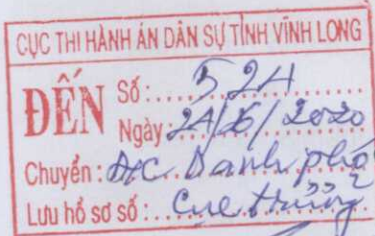 CỤC THI HÀNH ÁN DÂN SỰ TỈNH VĨNH LONG
ĐẾN
Số: 524
Ngày 24/6/2020
Chuyển: Đ/C. Danh phó
Lưu hồ sơ số: Cục trưởng